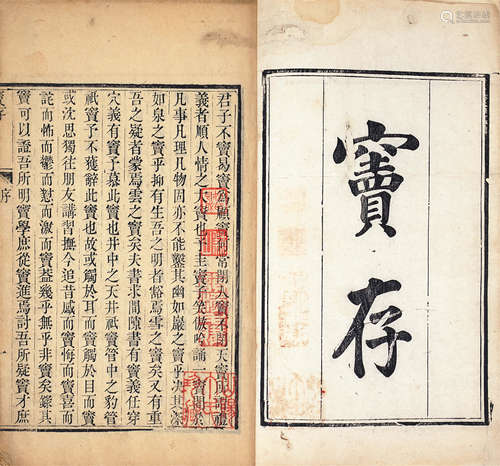 竇存
君子不竇易竇爲顧竇常閉人竇不閉天竇禮
義者順人情之大竇也予圭竇予笑傲吟誦一竇閒於
凡事凡理凡物固亦不能鑿其幽如巖之竇乎決其深
如泉之竇乎抑有生吾之明者豁焉雪之竇矣又有重
吾之疑者蒙焉雲之竇矣夫書求間隙書有竇義任穿
穴義有竇予慕此竇也井中之天井祇竇管中之豹管
祇竇予不獲辭此竇也故或觸於耳而竇觸於目而竇
或沈思獨往朋友講習撫今追昔感而竇悔而竇喜而
詫而怖而鬱而懟而溆而竇葢幾乎無乎非竇矣緣其
竇可以證吾所明竇學庶從竇進焉討吾所疑竇才庶
序